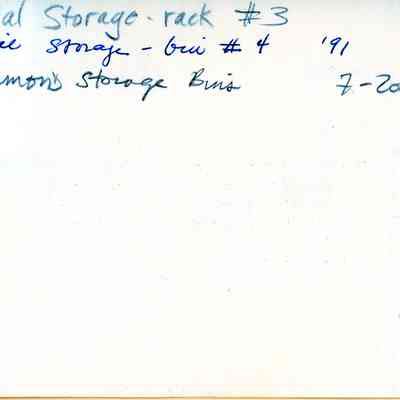 al Storage - rack #3
Storage - bin # 4 '91
Storage Bins 7-20